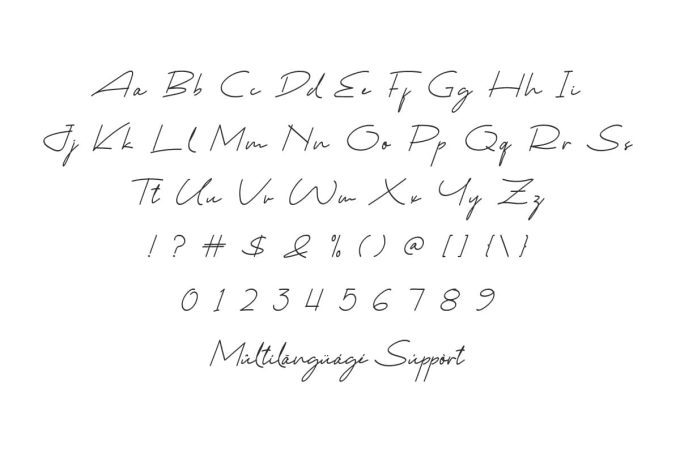 Aa Bb Cc Dd Ee Ff Gg Hh Ii
Jj Kk Ll Mm Nn Oo Pp Qq Rr Ss
Tt Uu Vv Ww Xx Yy Zz
! ? # $ & % ( ) @ [ ] { \ }
0 1 2 3 4 5 6 7 8 9
Múltilãngüágé Súppòrt